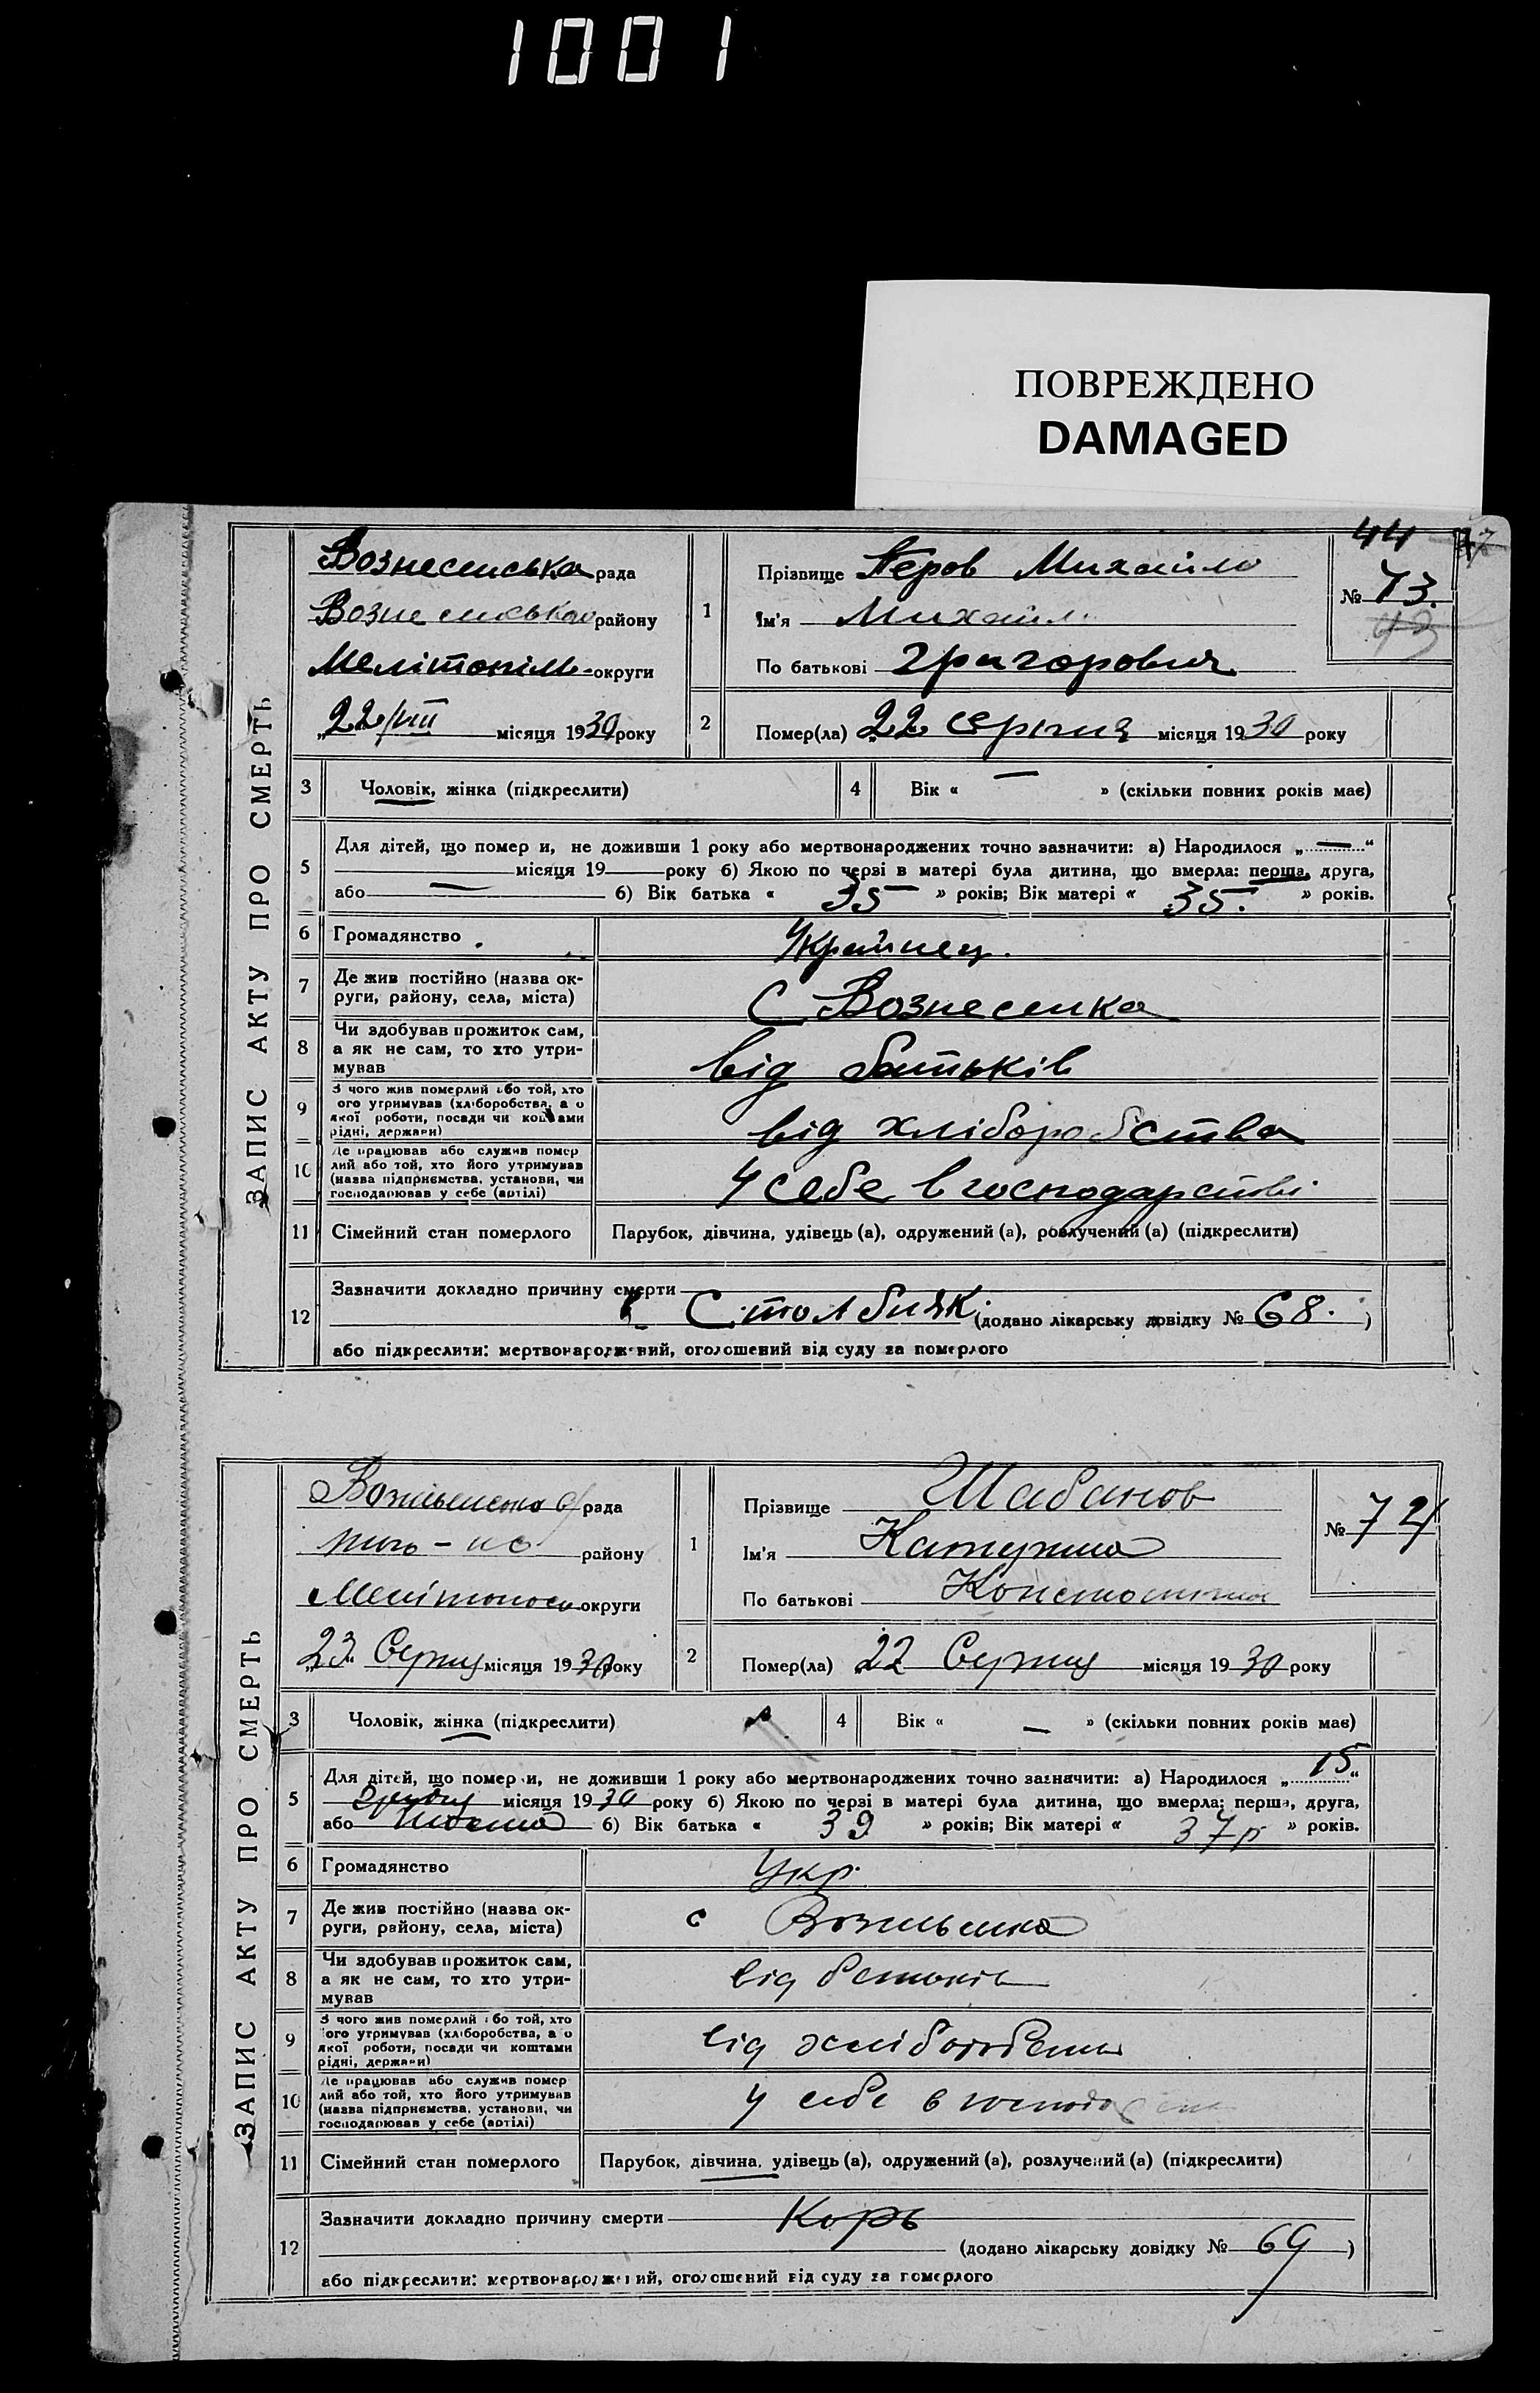 1001
ПОВРЕЖДЕНО
DAMAGED
44
ЗАПИС АКТУ ПРО СМЕРТЬ
Вознесенська рада
району
Мелітопіль- округи
„22/VIII місяця 1930 року
1
Прізвище Перов Михайло
Ім'я Михайл
По батькові Григорович
№ 73.
43
2
Помер(ла) 22 серпня місяця 1930 року
3 Чоловік, жінка (підкреслити)
4 Вік « — » (скільки повних років має)
5
Для дітей, що помер и, не доживши 1 року або мертвонароджених точно зазначити: а) Народилося „—“
місяця 19 року б) Якою по черзі в матері була дитина, що вмерла: перша, друга,
або — б) Вік батька « 35 » років; Вік матері « 35. » років.
6 Громадянство Українец.
7 Де жив постійно (назва ок-
руги, району, села, міста) С Вознесенка
8 Чи здобував прожиток сам,
а як не сам, то хто утри-
мував від батьків
9 З чого жив померлий або той, хто
ого утримував (хліборобства, а о
якої роботи, посади чи коштами
рідні, держави) від хліборобства
10 Де працював або служив помер
лий або той, хто його утримував
(назва підприємства, установи, чи
господарював у себе (артілі) У себе в господарстві
11 Сімейний стан померлого Парубок, дівчина, удівець (а), одружений (а), розлучений (а) (підкреслити)
12
Зазначити докладно причину смерти
Столбняк. (додано лікарську довідку № 68. )
або підкреслити: мертвонароджений, оголошений від суду за померлого
ЗАПИС АКТУ ПРО СМЕРТЬ
рада
району
округи
„23“ Серпня місяця 1930 року
1
Прізвище Шабанов
Ім'я Катерина
По батькові
№ 74
2
Помер(ла) 22 Серпня місяця 1930 року
3 Чоловік, жінка (підкреслити)
4 Вік « — » (скільки повних років має)
5
Для дітей, що помер и, не доживши 1 року або мертвонароджених точно зазначити: а) Народилося „15“
місяця 1930 року б) Якою по черзі в матері була дитина, що вмерла: перша, друга,
або шоста б) Вік батька « 39 » років; Вік матері « 37р » років.
6 Громадянство Укр.
7 Де жив постійно (назва ок-
руги, району, села, міста) с
8 Чи здобував прожиток сам,
а як не сам, то хто утри-
мував від батьків
9 З чого жив померлий або той, хто
ого утримував (хліборобства, а о
якої роботи, посади чи коштами
рідні, держави) від хліборобства
10 Де працював або служив помер
лий або той, хто його утримував
(назва підприємства, установи, чи
господарював у себе (артілі) У себе в
11 Сімейний стан померлого Парубок, дівчина, удівець (а), одружений (а), розлучений (а) (підкреслити)
12
Зазначити докладно причину смерти Корь
(додано лікарську довідку № 69 )
або підкреслити: мертвонароджений, оголошений від суду за померлого